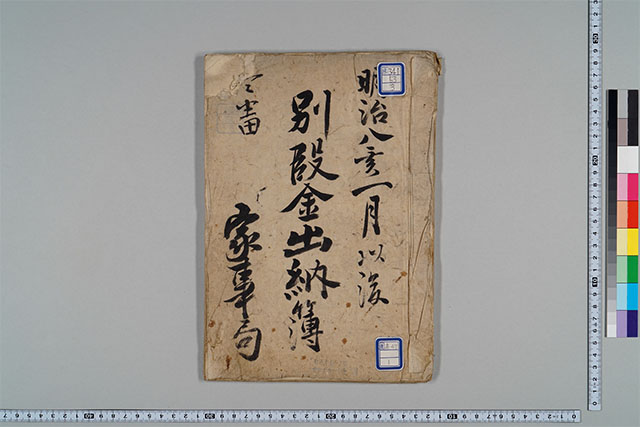 明治八亥一月以後
別段金出納簿
家事局